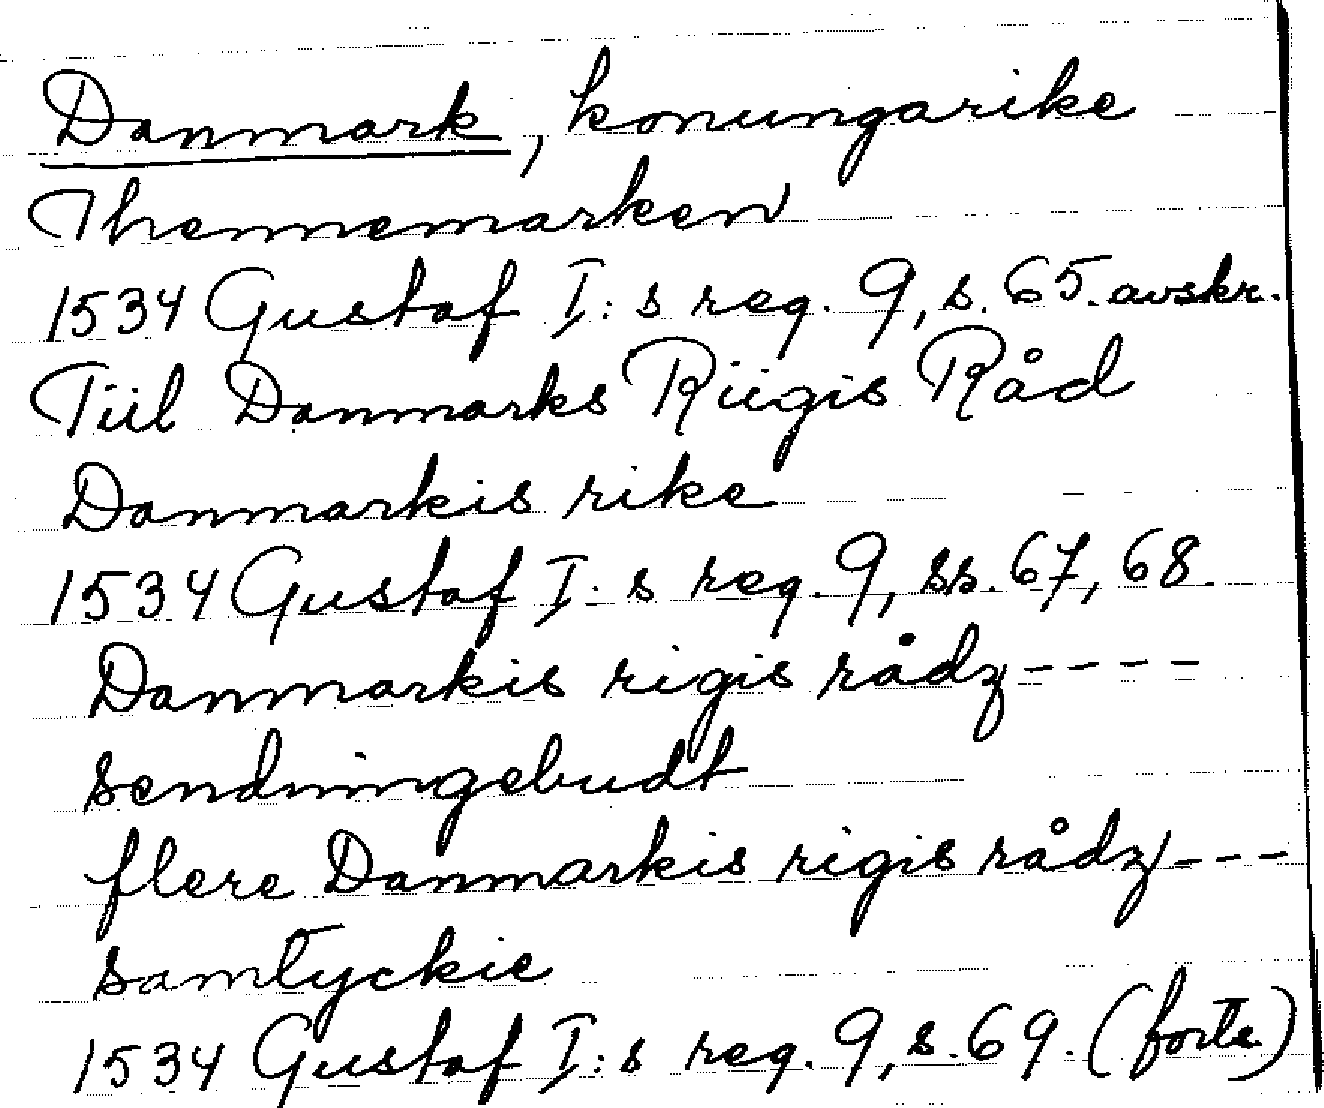 Danmark, konungarike
Thennemarken
1534 Gustaf I:s reg. 9, s. 65. avskr.
Tiil Danmarks Riigis Råd
Danmarkis rike
1534 Gustaf I:s reg. 9, ss. 67, 68.
Danmarkis rigis rådz ----
sendningebudt
flere Danmarkis rigis rådz ---
samtyckie
1534 Gustaf I:s reg. 9, s. 69. (forts)